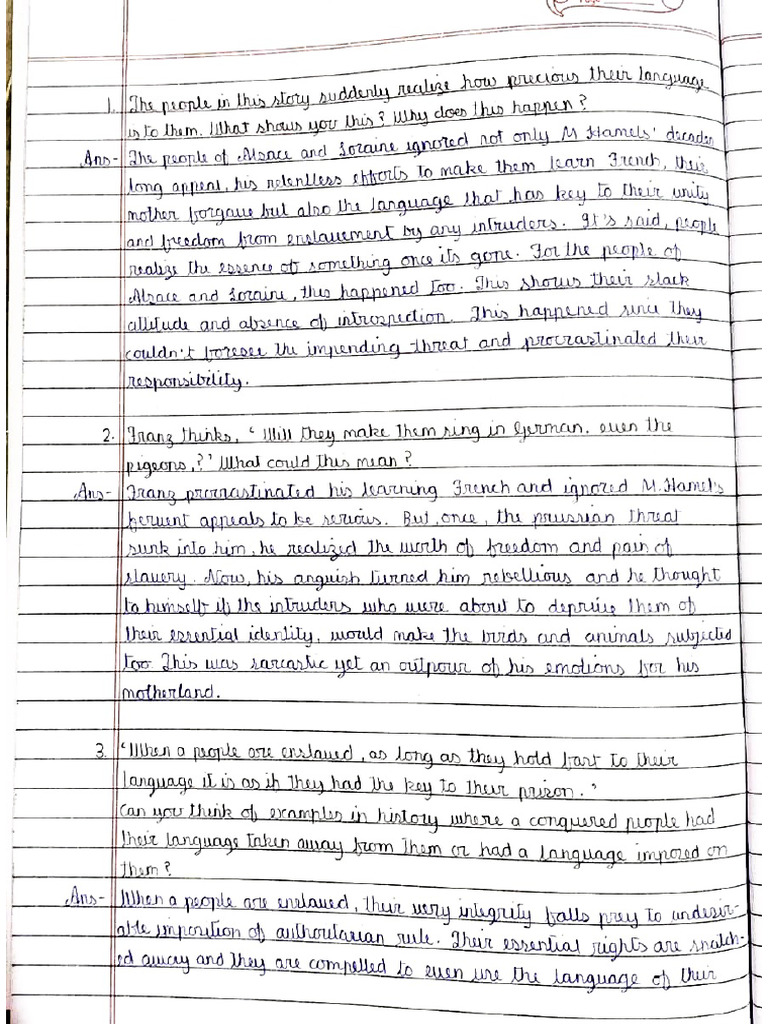 1. The people in this story suddenly realize how precious their language
is to them. What shows you this? Why does this happen?
Ans- The people of Alsace and Loraine ignored not only M Hamels' decades
long appeal, his relentless efforts to make them learn French, their
mother forgave but also the language that has key to their unity
and freedom from enslavement by any intruders. It's said, people
realize the essence of something once its gone. For the people of
Alsace and Loraine, this happened too. This shows their slack
attitude and absence of introspection. This happened since they
couldn't foresee the impending threat and procrastinated their
responsibility.
2. Franz thinks, ' Will they make them sing in German. even the
pigeons,?' What could this mean?
Ans- Franz procrastinated his learning French and ignored M. Hamel's
fervent appeals to be serious. But, once, the prussian threat
sunk into him, he realized the worth of freedom and pain of
slavery. Now, his anguish turned him rebellious and he thought
to himself if the intruders who were about to deprive them of
their essential identity, would make the birds and animals subjected
too. This was sarcastic yet an outpour of his emotions for his
motherland.
3. 'When a people are enslaved, as long as they hold fast to their
language it is as if they had the key to their prison.'
Can you think of examples in history where a conquered people had
their language taken away from them or had a language imposed on
them?
Ans- When a people are enslaved, their very integrity falls prey to undesir-
able imposition of authoritarian rule. Their essential rights are snatch-
ed away and they are compelled to even use the language of their